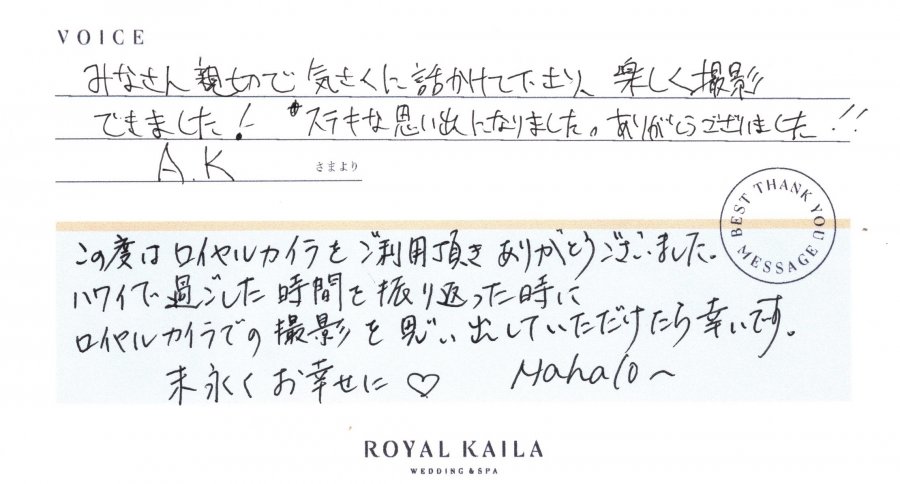 VOICE
みなさん親切で気さくに話かけて下さり、楽しく撮影
できました! *ステキな思い出になりました。ありがとうございました!!
A.K さまより
BEST THANK YOU MESSAGE
この度はロイヤルカイラをご利用頂きありがとうございました。
ハワイで過ごした時間を振り返った時に
ロイヤルカイラでの撮影を思い出していただけたら幸いです。
末永くお幸せに♡ Mahalo~
ROYAL KAILA
WEDDING & SPA